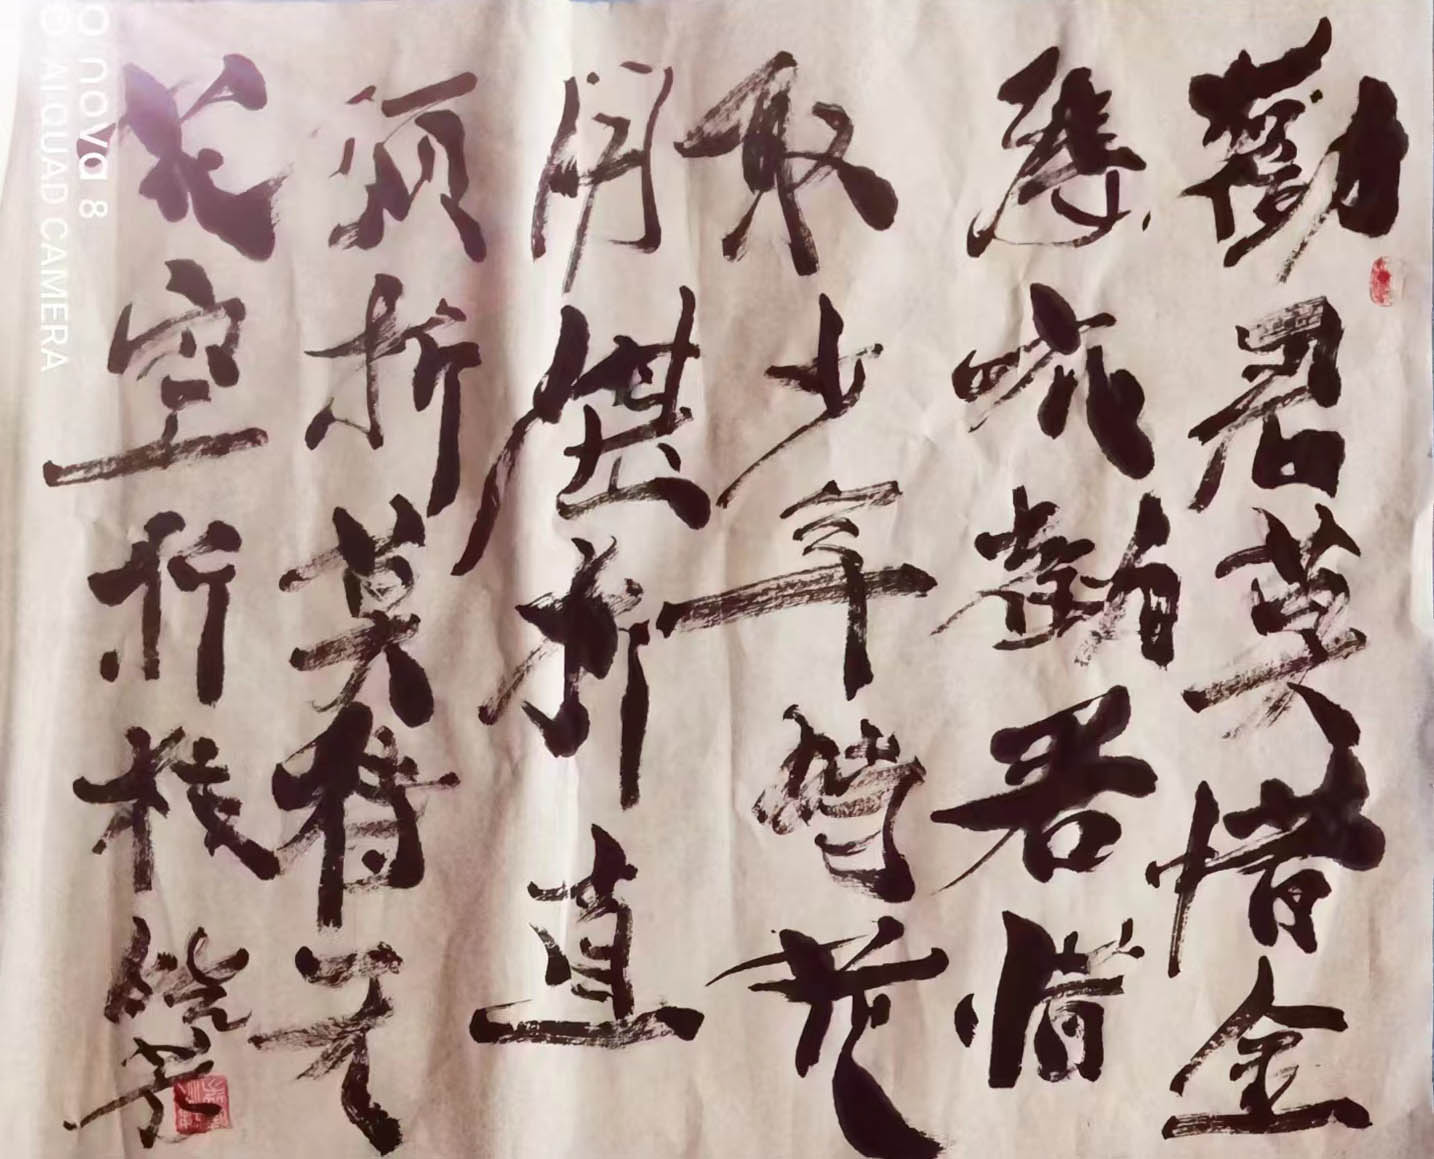 勸君莫惜金
縷衣勸君惜
取少年時花
開堪折直
須折莫待无
花空折枝
nova 8
AI QUAD CAMERA